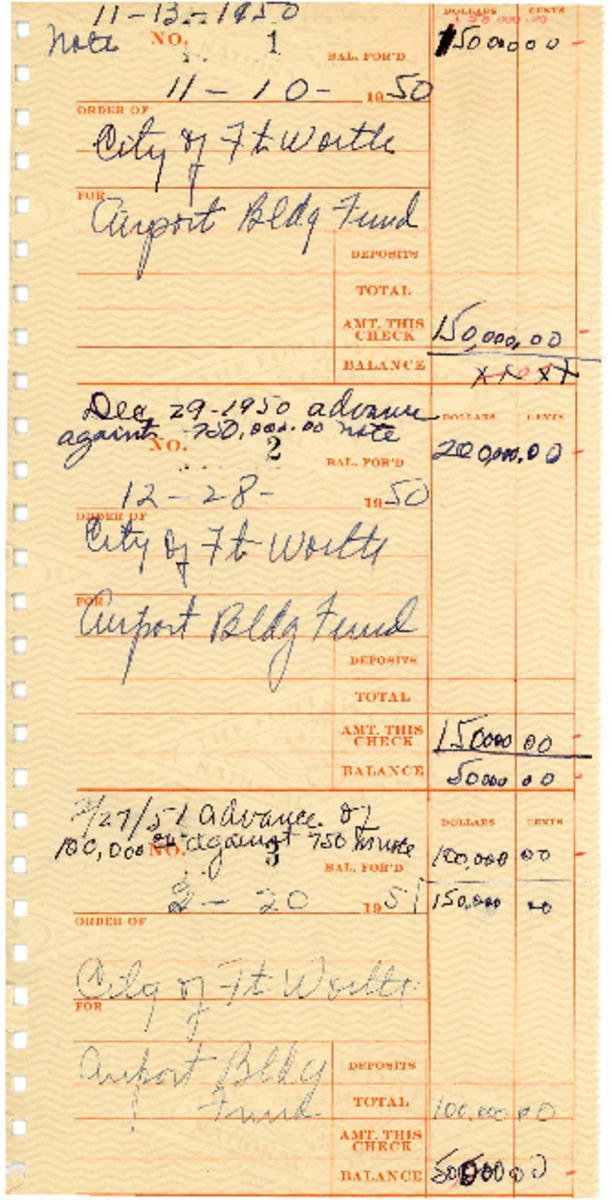 11-13-1950
DOLLARS CENTS
150,000.00
Note NO. 1 BAL. FOR'D 150000 0
11-10- 19 50
ORDER OF
City of Ft Worth
FOR
Airport Bldg Fund
DEPOSITS
TOTAL
AMT. THIS CHECK 150,000,00
BALANCE
Dec 29-1950 advance DOLLARS CENTS
against 750,000.00 note
NO. 2 BAL. FOR'D 200,000,00
12-28- 19 50
ORDER OF
City of Ft Worth
FOR
Airport Bldg Fund
DEPOSITS
TOTAL
AMT. THIS CHECK 150000 00
BALANCE 50000 00
2/27/51 advance of DOLLARS CENTS
100,000 against 750 M note
NO. 3 BAL. FOR'D 100,000 00
2-20 19 51 150,000 00
ORDER OF
City of Ft Worth
FOR
Airport Bldg DEPOSITS
Fund TOTAL 100,000 00
AMT. THIS CHECK
BALANCE 50000 00